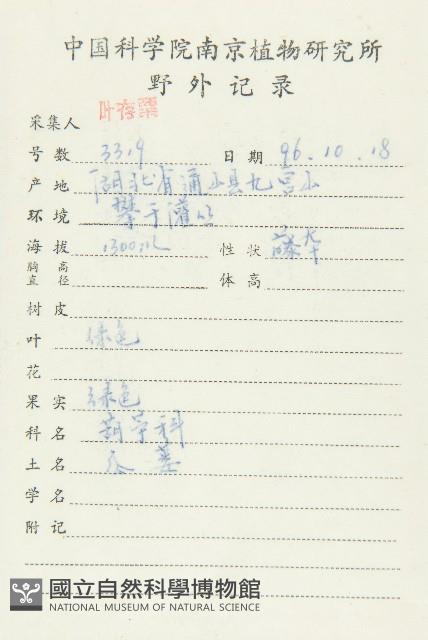 中国科学院南京植物研究所
野外记录
采集人 叶存粟
号数 3319 日期 96.10.18
产地 湖北省通山县九宫山
环境 攀于灌丛
海拔 1300m 性状 藤本
胸高直径 体高
树皮
叶 绿色
花
果实 绿色
科名 葫芦科
土名
学名
附记
國立自然科學博物館
NATIONAL MUSEUM OF NATURAL SCIENCE